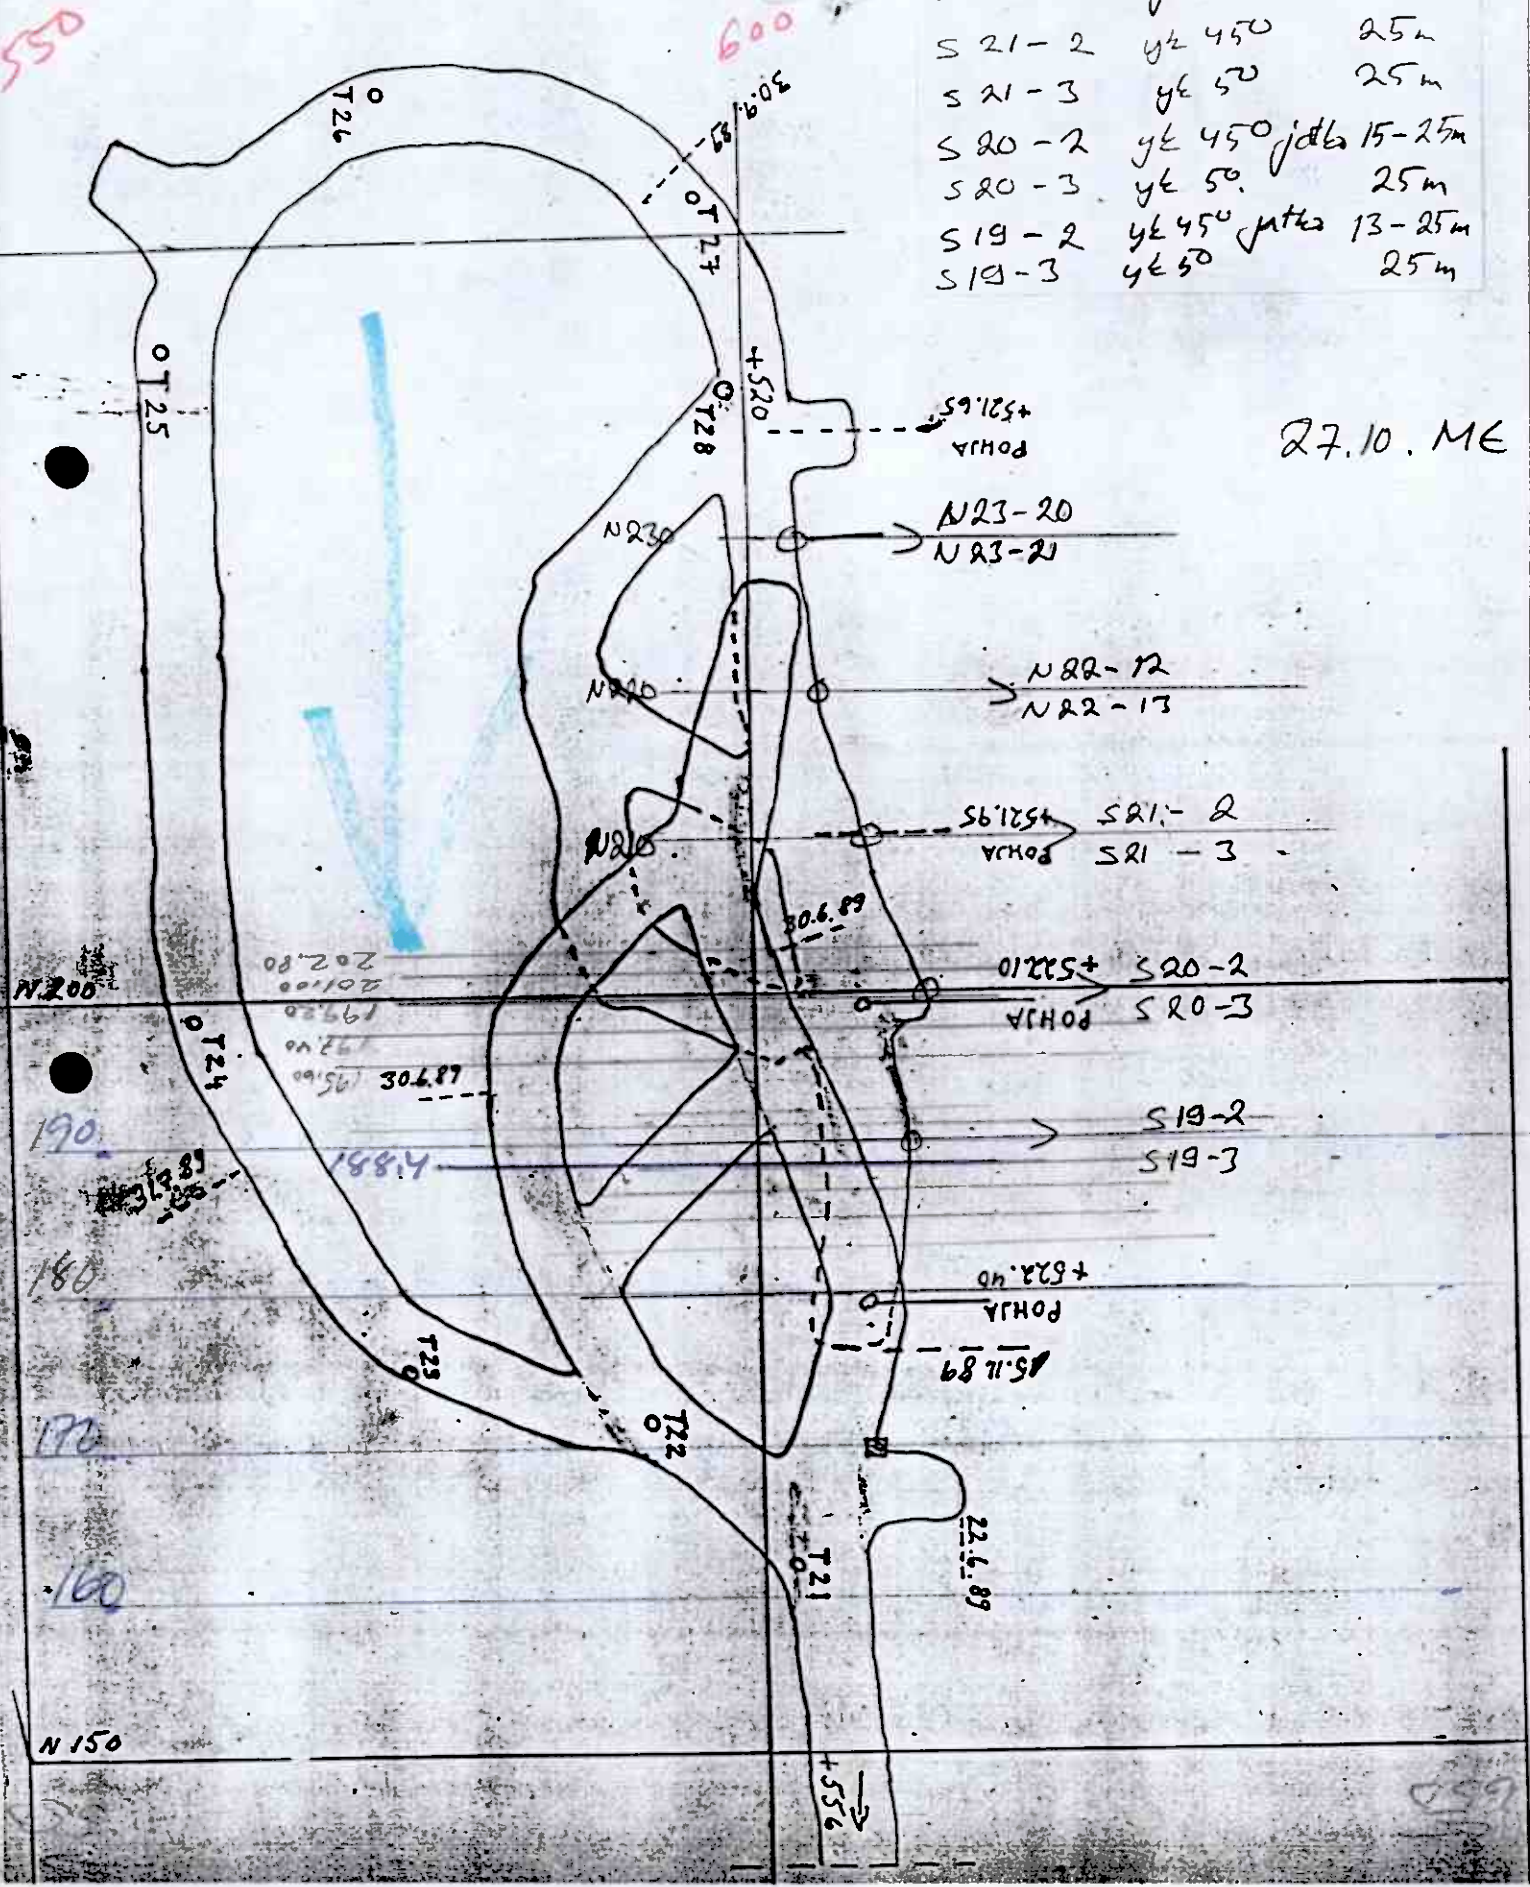 550
600
S 21 - 2 yk 45° 25m
S 21 - 3 yk 5° 25m
S 20 - 2 yk 45° jatko 15-25m
S 20 - 3 yk 5° 25m
S 19 - 2 yk 45° jatko 13-25m
S 19 - 3 yk 5° 25m
30.9.
89
T26
T27
T25
+520
T28
+521.65
POHJA
27.10. ME
N230
N23-20
N23-21
N220
N22-12
N22-13
N210
+521.95
POHJA
S21 - 2
S21 - 3
30.6.89
202.80
201.00
199.20
197.40
195.60
N.200
+522.10
POHJA
S20-2
S20-3
T24
30.6.89
190
188.4
S19-2
S19-3
31.7.89
180
+522.40
POHJA
15.11.89
T23
T22
170
T21
22.6.89
160
N 150
+556